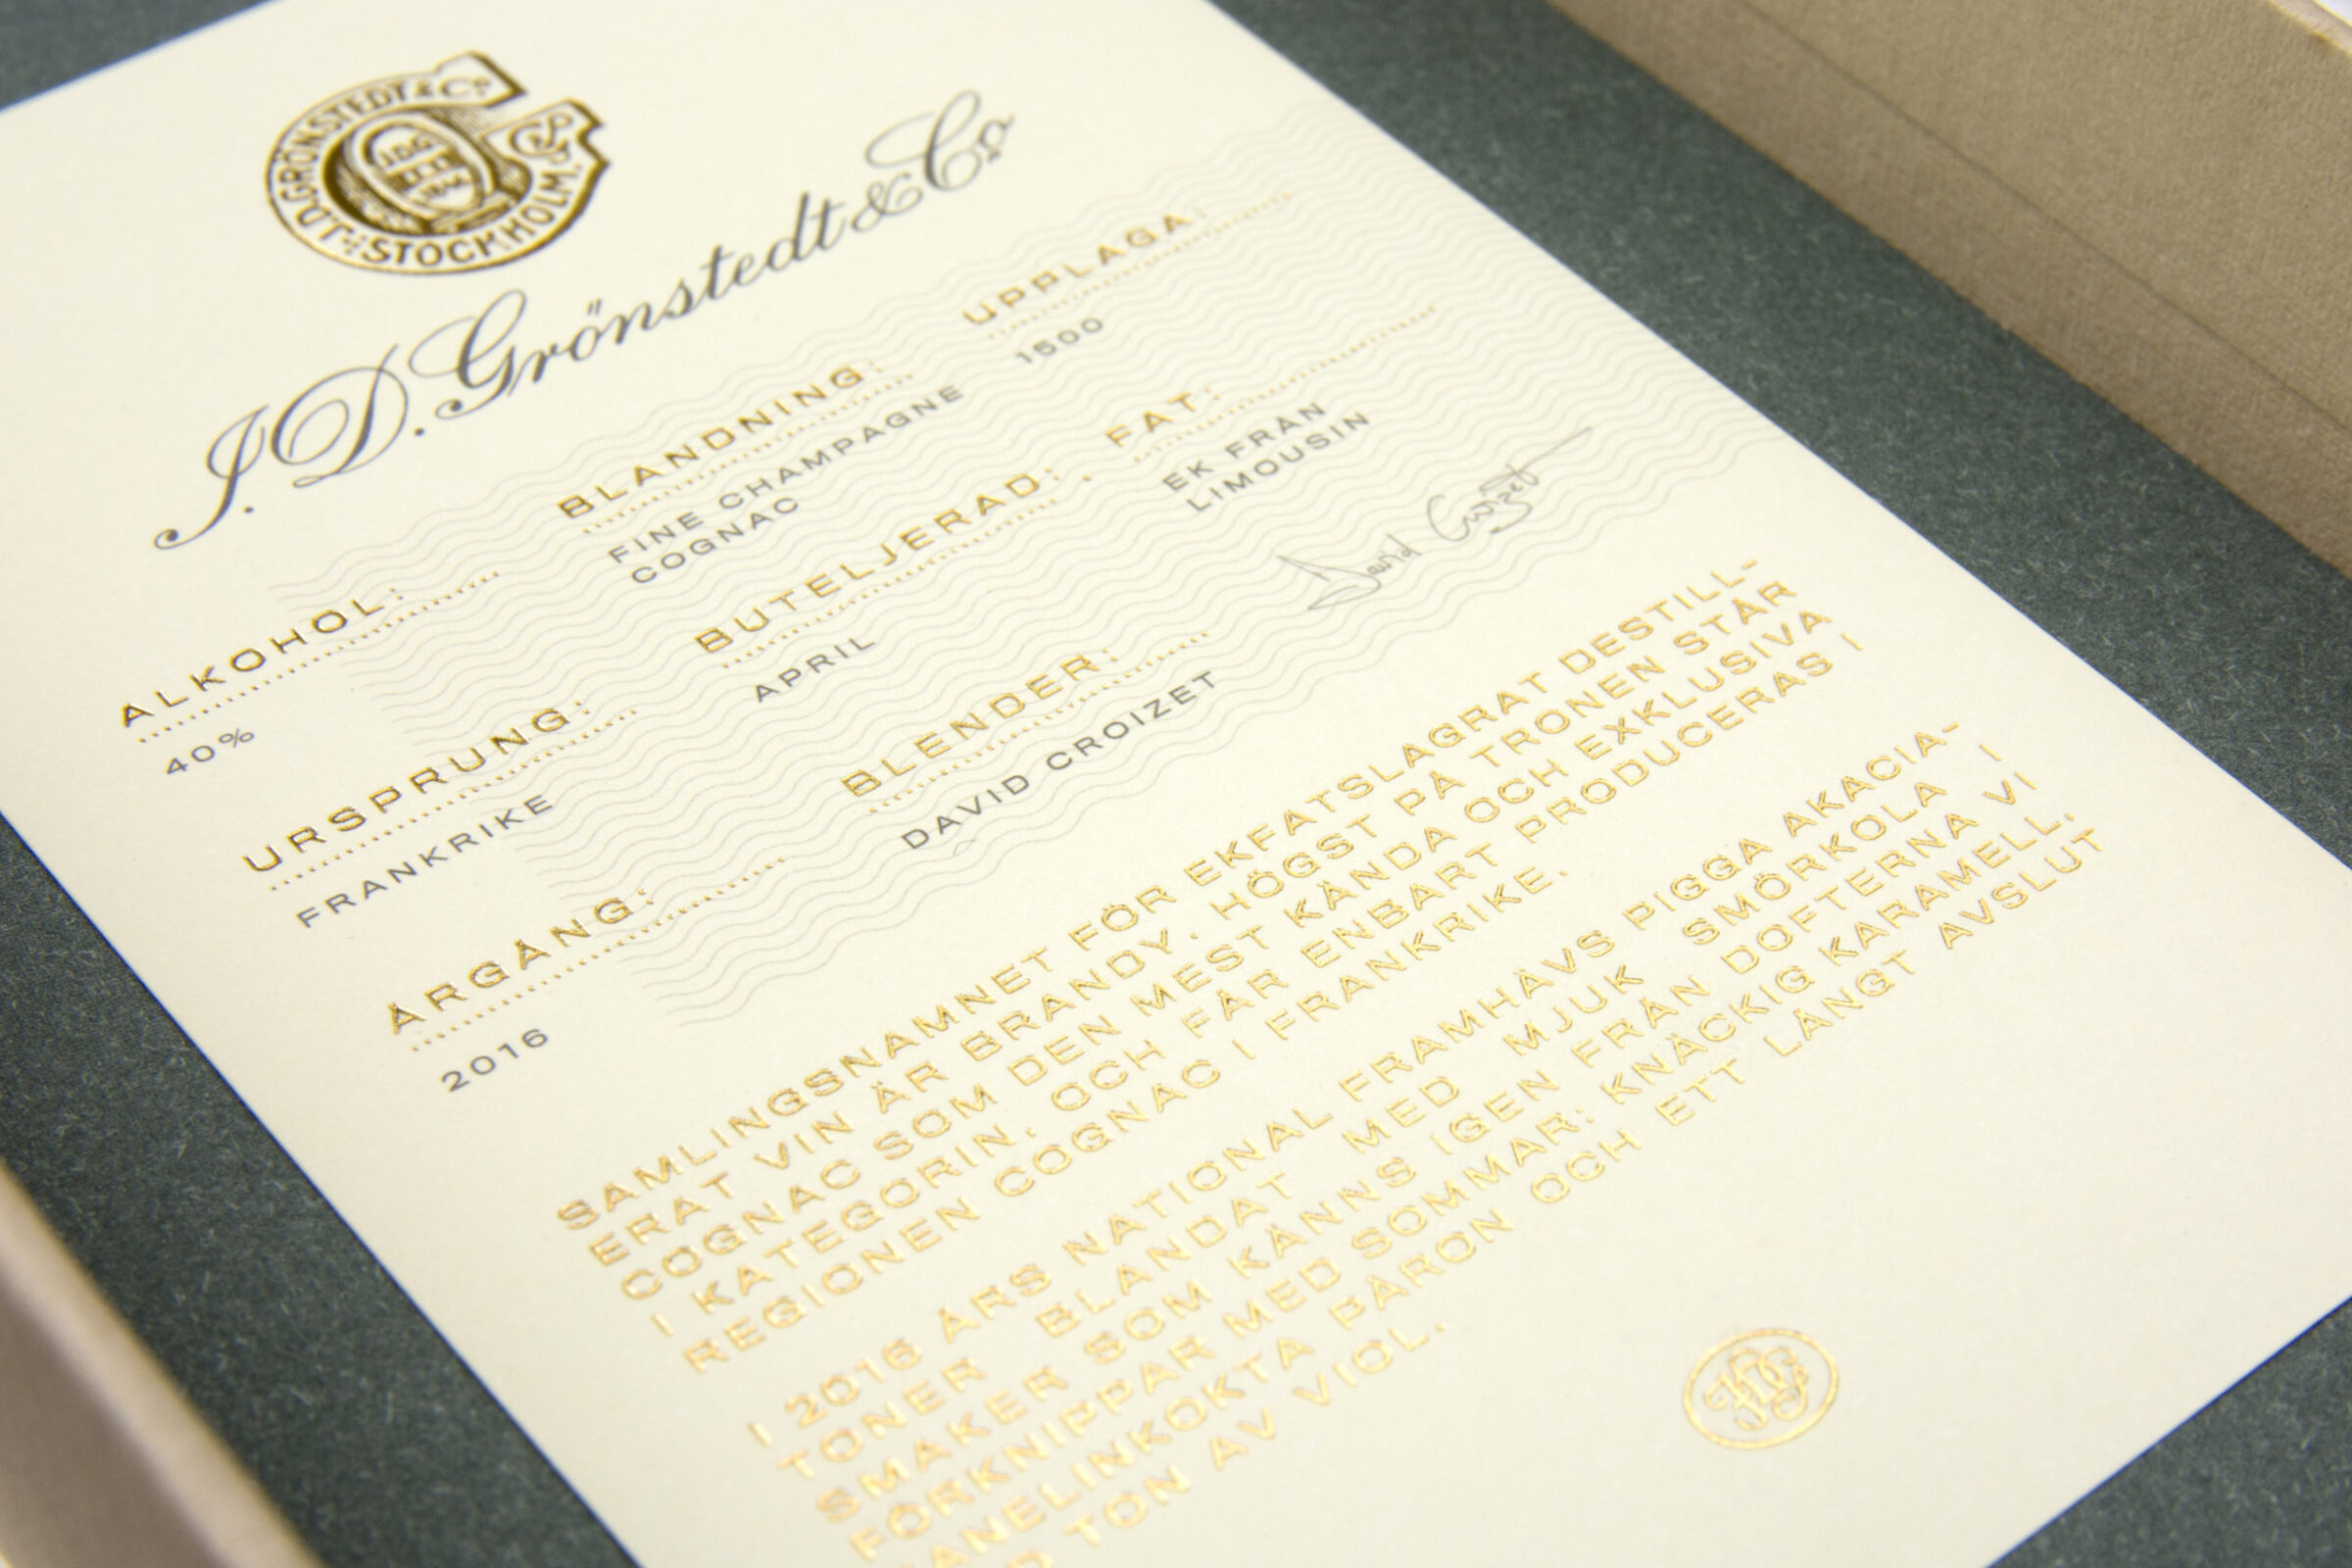 J.D. GRÖNSTEDT & Co.
STOCKHOLM.
J.D. Grönstedt & Co
ALKOHOL:
40%
BLANDNING:
FINE CHAMPAGNE
COGNAC
UPPLAGA:
1500
URSPRUNG:
FRANKRIKE
BUTELJERAD:
APRIL
FAT:
EK FRÅN
LIMOUSIN
ÅRGÅNG:
2016
BLENDER:
DAVID CROIZET
David Croizet
SAMLINGSNAMNET FÖR EKFATSLAGRAT DESTILL-
ERAT VIN ÄR BRANDY. HÖGST PÅ TRONEN STÅR
COGNAC SOM DEN MEST KÄNDA OCH EXKLUSIVA
I KATEGORIN. OCH FÅR ENBART PRODUCERAS I
REGIONEN COGNAC I FRANKRIKE.
I 2016 ÅRS NATIONAL FRAMHÄVS PIGGA AKACIA-
TONER BLANDAT MED MJUK SMÖRKOLA I
SMAKER SOM KÄNNS IGEN FRÅN DOFTERNA VI
FÖRKNIPPAR MED SOMMAR: KNÄCKIG KARAMELL,
KANELINKOKTA PÄRON OCH ETT LÅNGT AVSLUT
TON AV VIOL.
JDG